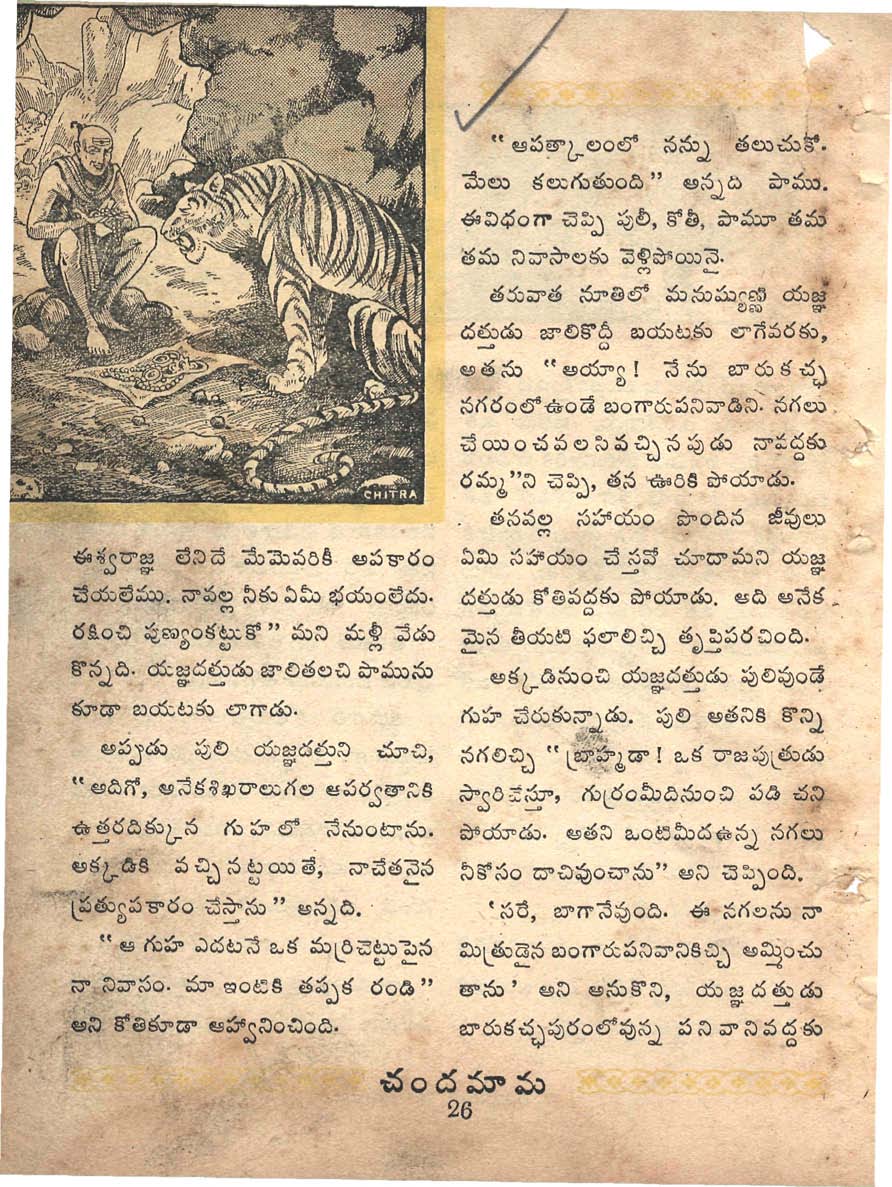 CHITRA
ఈశ్వరాజ్ఞ లేనిదే మేమెవరికీ అపకారం
చేయలేము. నావల్ల నీకు ఏమీ భయంలేదు.
రక్షించి పుణ్యంకట్టుకో" మని మళ్లీ వేడు
కొన్నది. యజ్ఞదత్తుడు జాలితలచి పామును
కూడా బయటకు లాగాడు.
అప్పుడు పులి యజ్ఞదత్తుని చూచి,
"అదిగో, అనేకశిఖరాలుగల ఆపర్వతానికి
ఉత్తరదిక్కున గుహలో నేనుంటాను.
అక్కడికి వచ్చినట్టయితే, నాచేతనైన
ప్రత్యుపకారం చేస్తాను" అన్నది.
"ఆ గుహ ఎదటనే ఒక మర్రిచెట్టుపైన
నా నివాసం. మా ఇంటికి తప్పక రండి"
అని కోతికూడా ఆహ్వానించింది.
"ఆపత్కాలంలో నన్ను తలుచుకో.
మేలు కలుగుతుంది" అన్నది పాము.
ఈవిధంగా చెప్పి పులీ, కోతీ, పామూ తమ
తమ నివాసాలకు వెళ్లిపోయినై.
తరువాత నూతిలో మనుష్యుణ్ణి యజ్ఞ
దత్తుడు జాలికొద్దీ బయటకు లాగేవరకు,
అతను "అయ్యా! నేను బారుకచ్ఛ
నగరంలోఉండే బంగారుపనివాడిని. నగలు
చేయించవలసివచ్చినపుడు నావద్దకు
రమ్మ"ని చెప్పి, తన ఊరికి పోయాడు.
తనవల్ల సహాయం పొందిన జీవులు
ఏమి సహాయం చేస్తవో చూదామని యజ్ఞ
దత్తుడు కోతివద్దకు పోయాడు. అది అనేక
మైన తీయటి ఫలాలిచ్చి తృప్తిపరచింది.
అక్కడినుంచి యజ్ఞదత్తుడు పులివుండే
గుహ చేరుకున్నాడు. పులి అతనికి కొన్ని
నగలిచ్చి "బ్రాహ్మడా! ఒక రాజపుత్రుడు
స్వారిచేస్తూ, గుర్రంమీదినుంచి పడి చని
పోయాడు. అతని ఒంటిమీదఉన్న నగలు
నీకోసం దాచివుంచాను" అని చెప్పింది.
'సరే, బాగానేవుంది. ఈ నగలను నా
మిత్రుడైన బంగారుపనివానికిచ్చి అమ్మించు
తాను' అని అనుకొని, యజ్ఞదత్తుడు
బారుకచ్ఛపురంలోవున్న పనివానివద్దకు
చందమామ
26